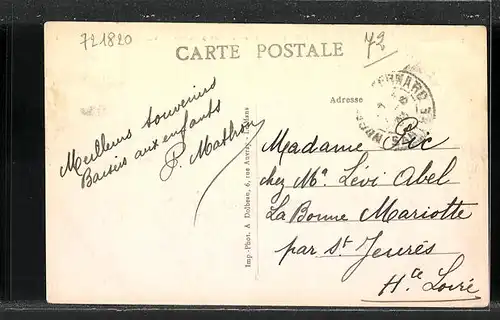 721820
42
CARTE POSTALE
Adresse
Meilleurs souvenirs
Baisers aux enfants
P. Mathon
Imp.-Phot. A Dolbeau, 6, rue Auvray
Madame Pic
chez Mr. Lévi Abel
La Bonne Mariotte
par St Jeures
Hte Loire